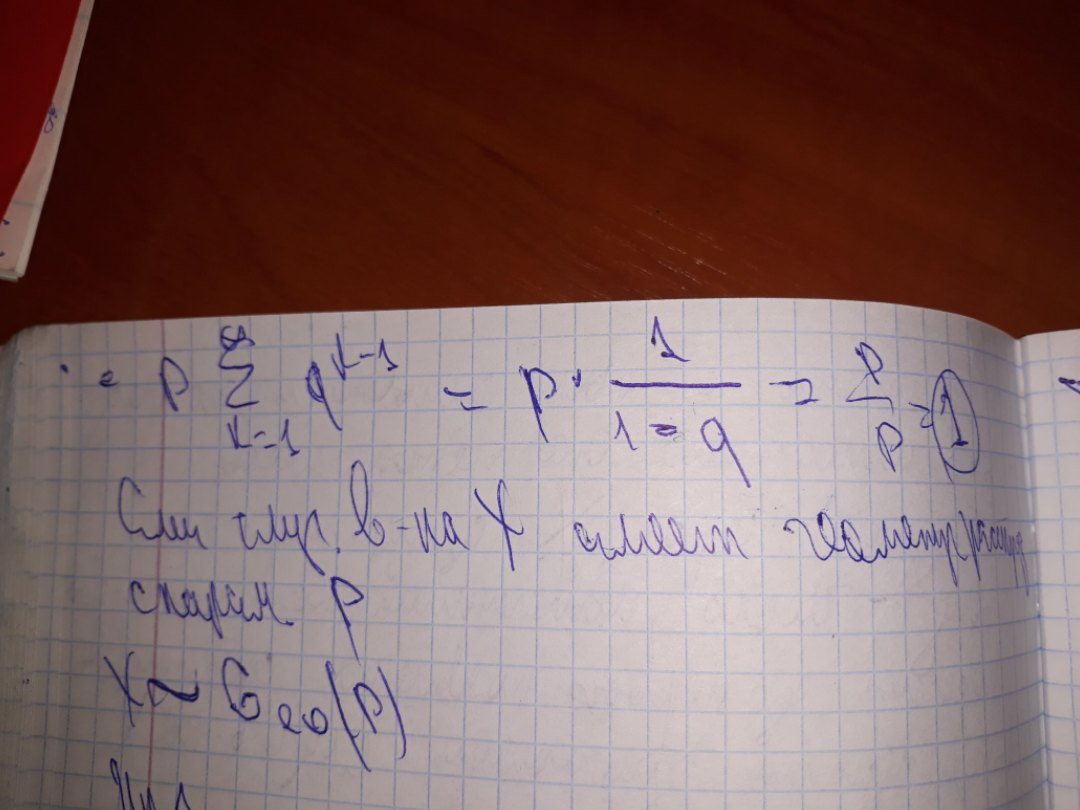 = p ∑_{k=1}^{∞} q^{k-1} = p · 1/(1-q) = p/p = 1
Если случ. в-на X имеет геометр распр
с парам. p
X ~ Geo(p)